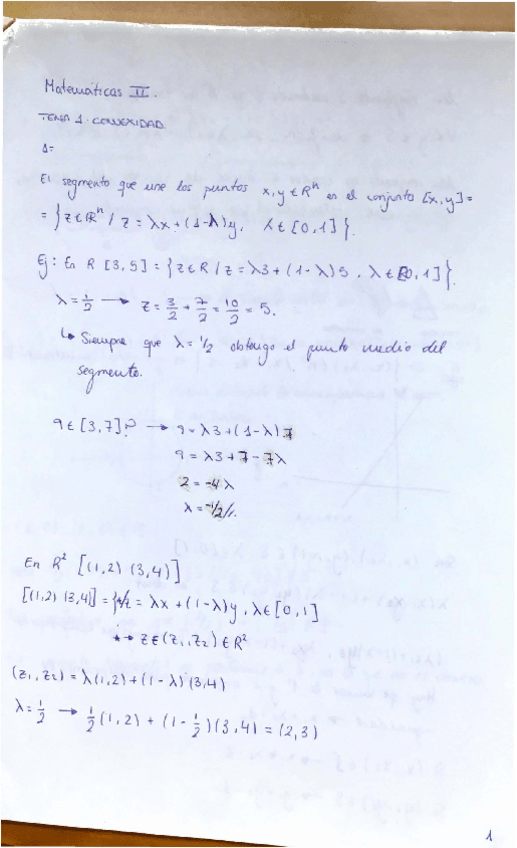 Matemáticas II.
TEMA 1: CONVEXIDAD
1=
El segmento que une los puntos x, y ∈ Rⁿ es el conjunto [x, y] =
= { z ∈ Rⁿ / z = λx + (1-λ)y, λ ∈ [0, 1] }.
Ej: En R [3, 5] = { z ∈ R / z = λ3 + (1 - λ) 5 , λ ∈ [0, 1] }.
λ = 1/2 → z = 3/2 + 7/2 = 10/2 = 5.
↳ Siempre que λ = 1/2 obtengo el punto medio del
segmento.
9 ∈ [3, 7]? → 9 = λ3 + (1 - λ) 7
9 = λ3 + 7 - 7λ
2 = -4λ
λ = -1/2
En R² [(1, 2) (3, 4)]
[(1, 2) (3, 4)] = { z / z = λx + (1 - λ) y , λ ∈ [0, 1]
z ∈ (z₁, z₂) ∈ R²
(z₁, z₂) = λ(1, 2) + (1 - λ) (3, 4)
λ = 1/2 → 1/2 (1, 2) + (1 - 1/2) (3, 4) = (2, 3)
1